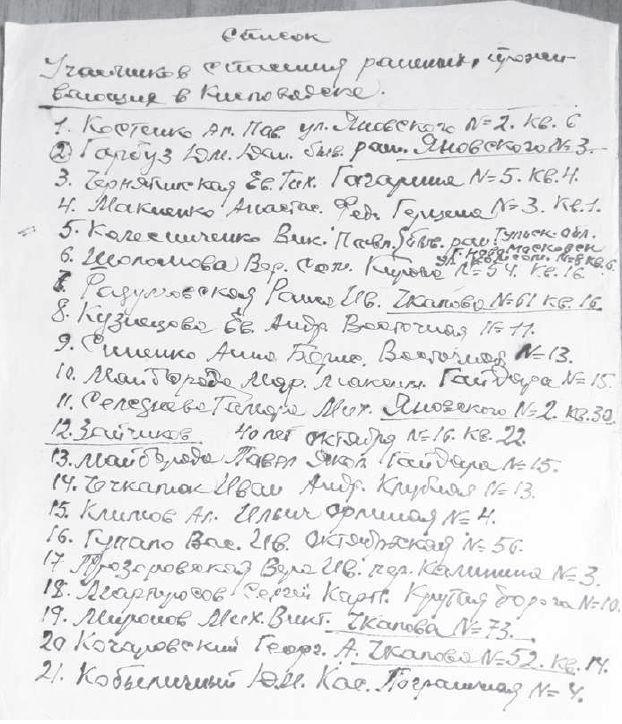 Список
Участников спасения раненых, прожи-
вающих в Кисловодске.
1. Костенко Ал. Пав. ул. Яновского №2. кв. 6
2 Гарбуз Юл. быв. ран. Яновского №3.
3. Чернявская Ев. Тих. Гагарина №5. кв. 4.
4. Макиенко Анастас. Фед. Герцена №3. кв. 1.
5. Колесниченко Вик. Павл. быв. ран. Тульск. обл.
г. Новомосковск
№8 кв. 6.
6. Шоломова Вер. Сол. Кирова №54. кв. 16.
7. Разумовская Раиса Ив. Чкалова №61 кв. 16.
8. Кузнецова Ев. Андр Восточная №11.
9. Синенко Анна Восточная №13.
10. Майборода Мар. Максим. Гайдара №15.
11. Селезнева Тамара Мих. Яновского №2. кв. 30.
12. Зайчиков 40 лет октября №16. кв. 22.
13. Майборода Павел Яков. Гайдара №15.
14. Иван Андр. Клубная №13.
15. Климов Ал. Ильич №4.
16. Гупало Вас. Ив. Октябрьская №56.
17 Прозоровская Вера Ив. пер. Калинина №3.
18. Мартиросов Сергей Карп. Крутая дорога №10.
19. Миронов Мих. Викт. Чкалова №73.
20 Кочаровский Георг. А. Чкалова №52. кв. 14.
21. Кобыличный Юл. Кас. Пограничная №4.